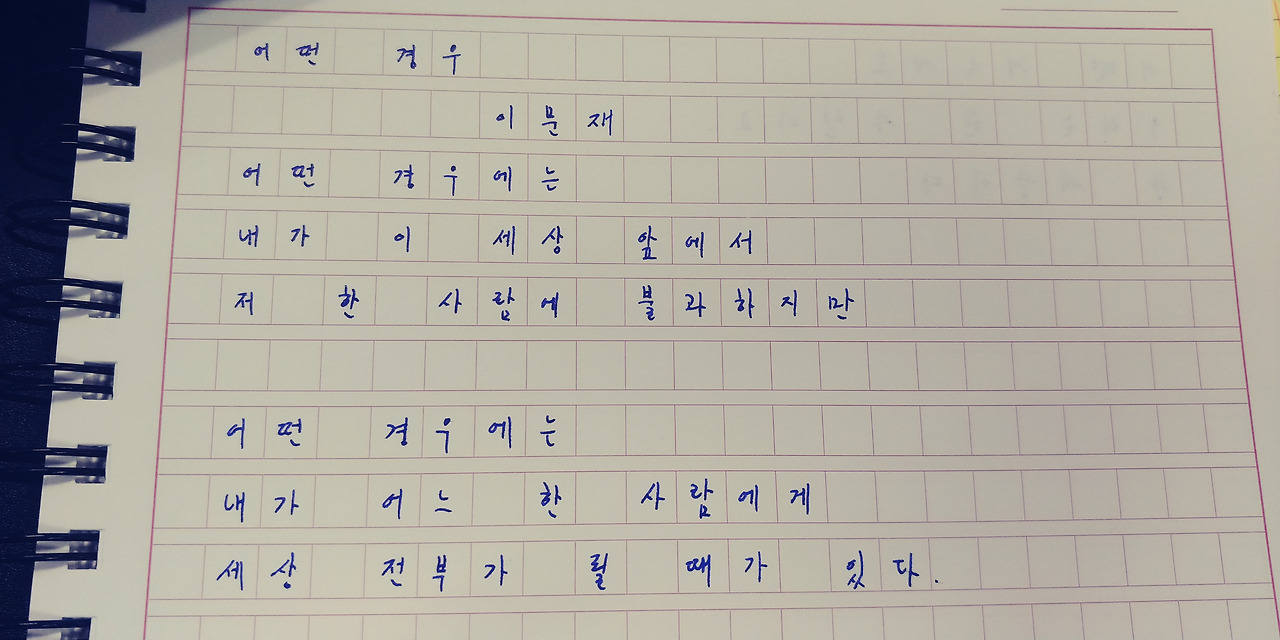 어떤 경우
이문재
어떤 경우에는
내가 이 세상 앞에서
저 한 사람에 불과하지만
어떤 경우에는
내가 어느 한 사람에게
세상 전부가 될 때가 있다.